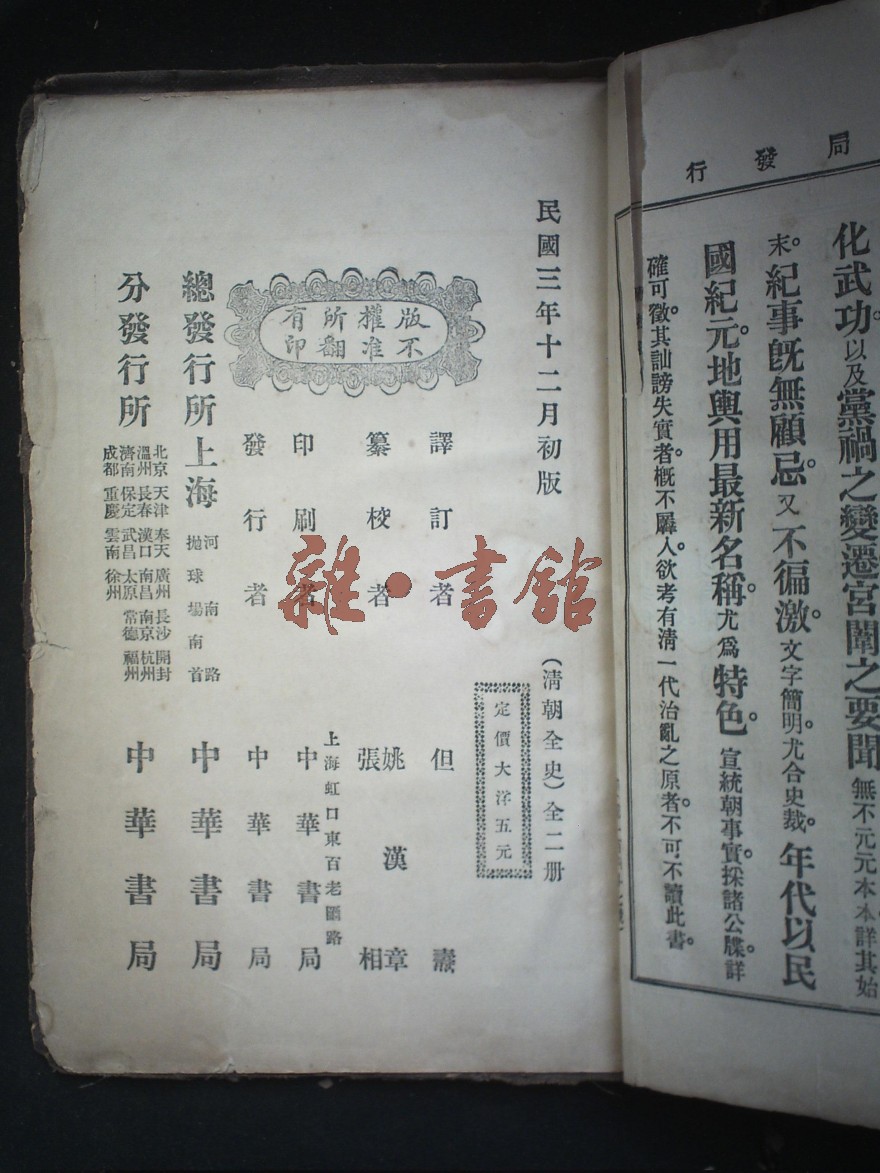 局發行
化武功。以及黨禍之變遷宮闈之要聞無不元元本本。詳其始
末。紀事旣無顧忌。又不徧激。文字簡明。尤合史裁。年代以民
國紀元。地輿用最新名稱。尤爲特色。宣統朝事實。採諸公牒。詳
確可徵。其訕謗失實者。概不羼入。欲考有清一代治亂之原者。不可不讀此書。
民國三年十二月初版
(清朝全史)全二册
定價大洋五元
版權所有
不准翻印
譯訂者 但燾
纂校者 姚漢章
張相
印刷者 上海虹口東百老匯路
中華書局
發行者 中華書局
總發行所 上海 河南路
拋球場南首 中華書局
分發行所
北京 天津 奉天 廣州 長沙 開封
溫州 長春 漢口 南昌 南京 杭州
濟南 保定 武昌 太原 常德 福州
成都 重慶 雲南 徐州
中華書局
雜·書館